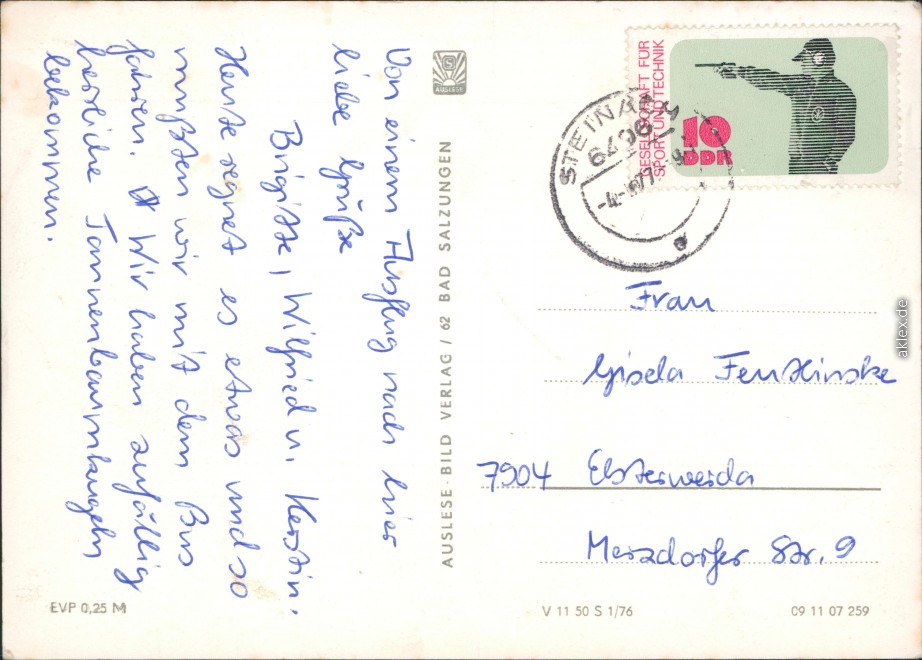 Von einem Ausflug nach hier
liebe Grüße
Brigitte, Wilfried u. Kerstin.
Heute regnet es etwas und so
mußten wir mit dem Bus
fahren. Wir haben zufällig
herrliche Tannenbaumkugeln
bekommen.
AUSLESE
AUSLESE-BILD VERLAG / 62 BAD SALZUNGEN
GESELLSCHAFT FÜR
SPORT UND TECHNIK
10
DDR
STEINACH
6406
Frau
Gisela
7904 Elsterwerda
Merzdorfer Str. 9
EVP 0,25 M
V 11 50 S 1/76
09 11 07 259
aklex.de